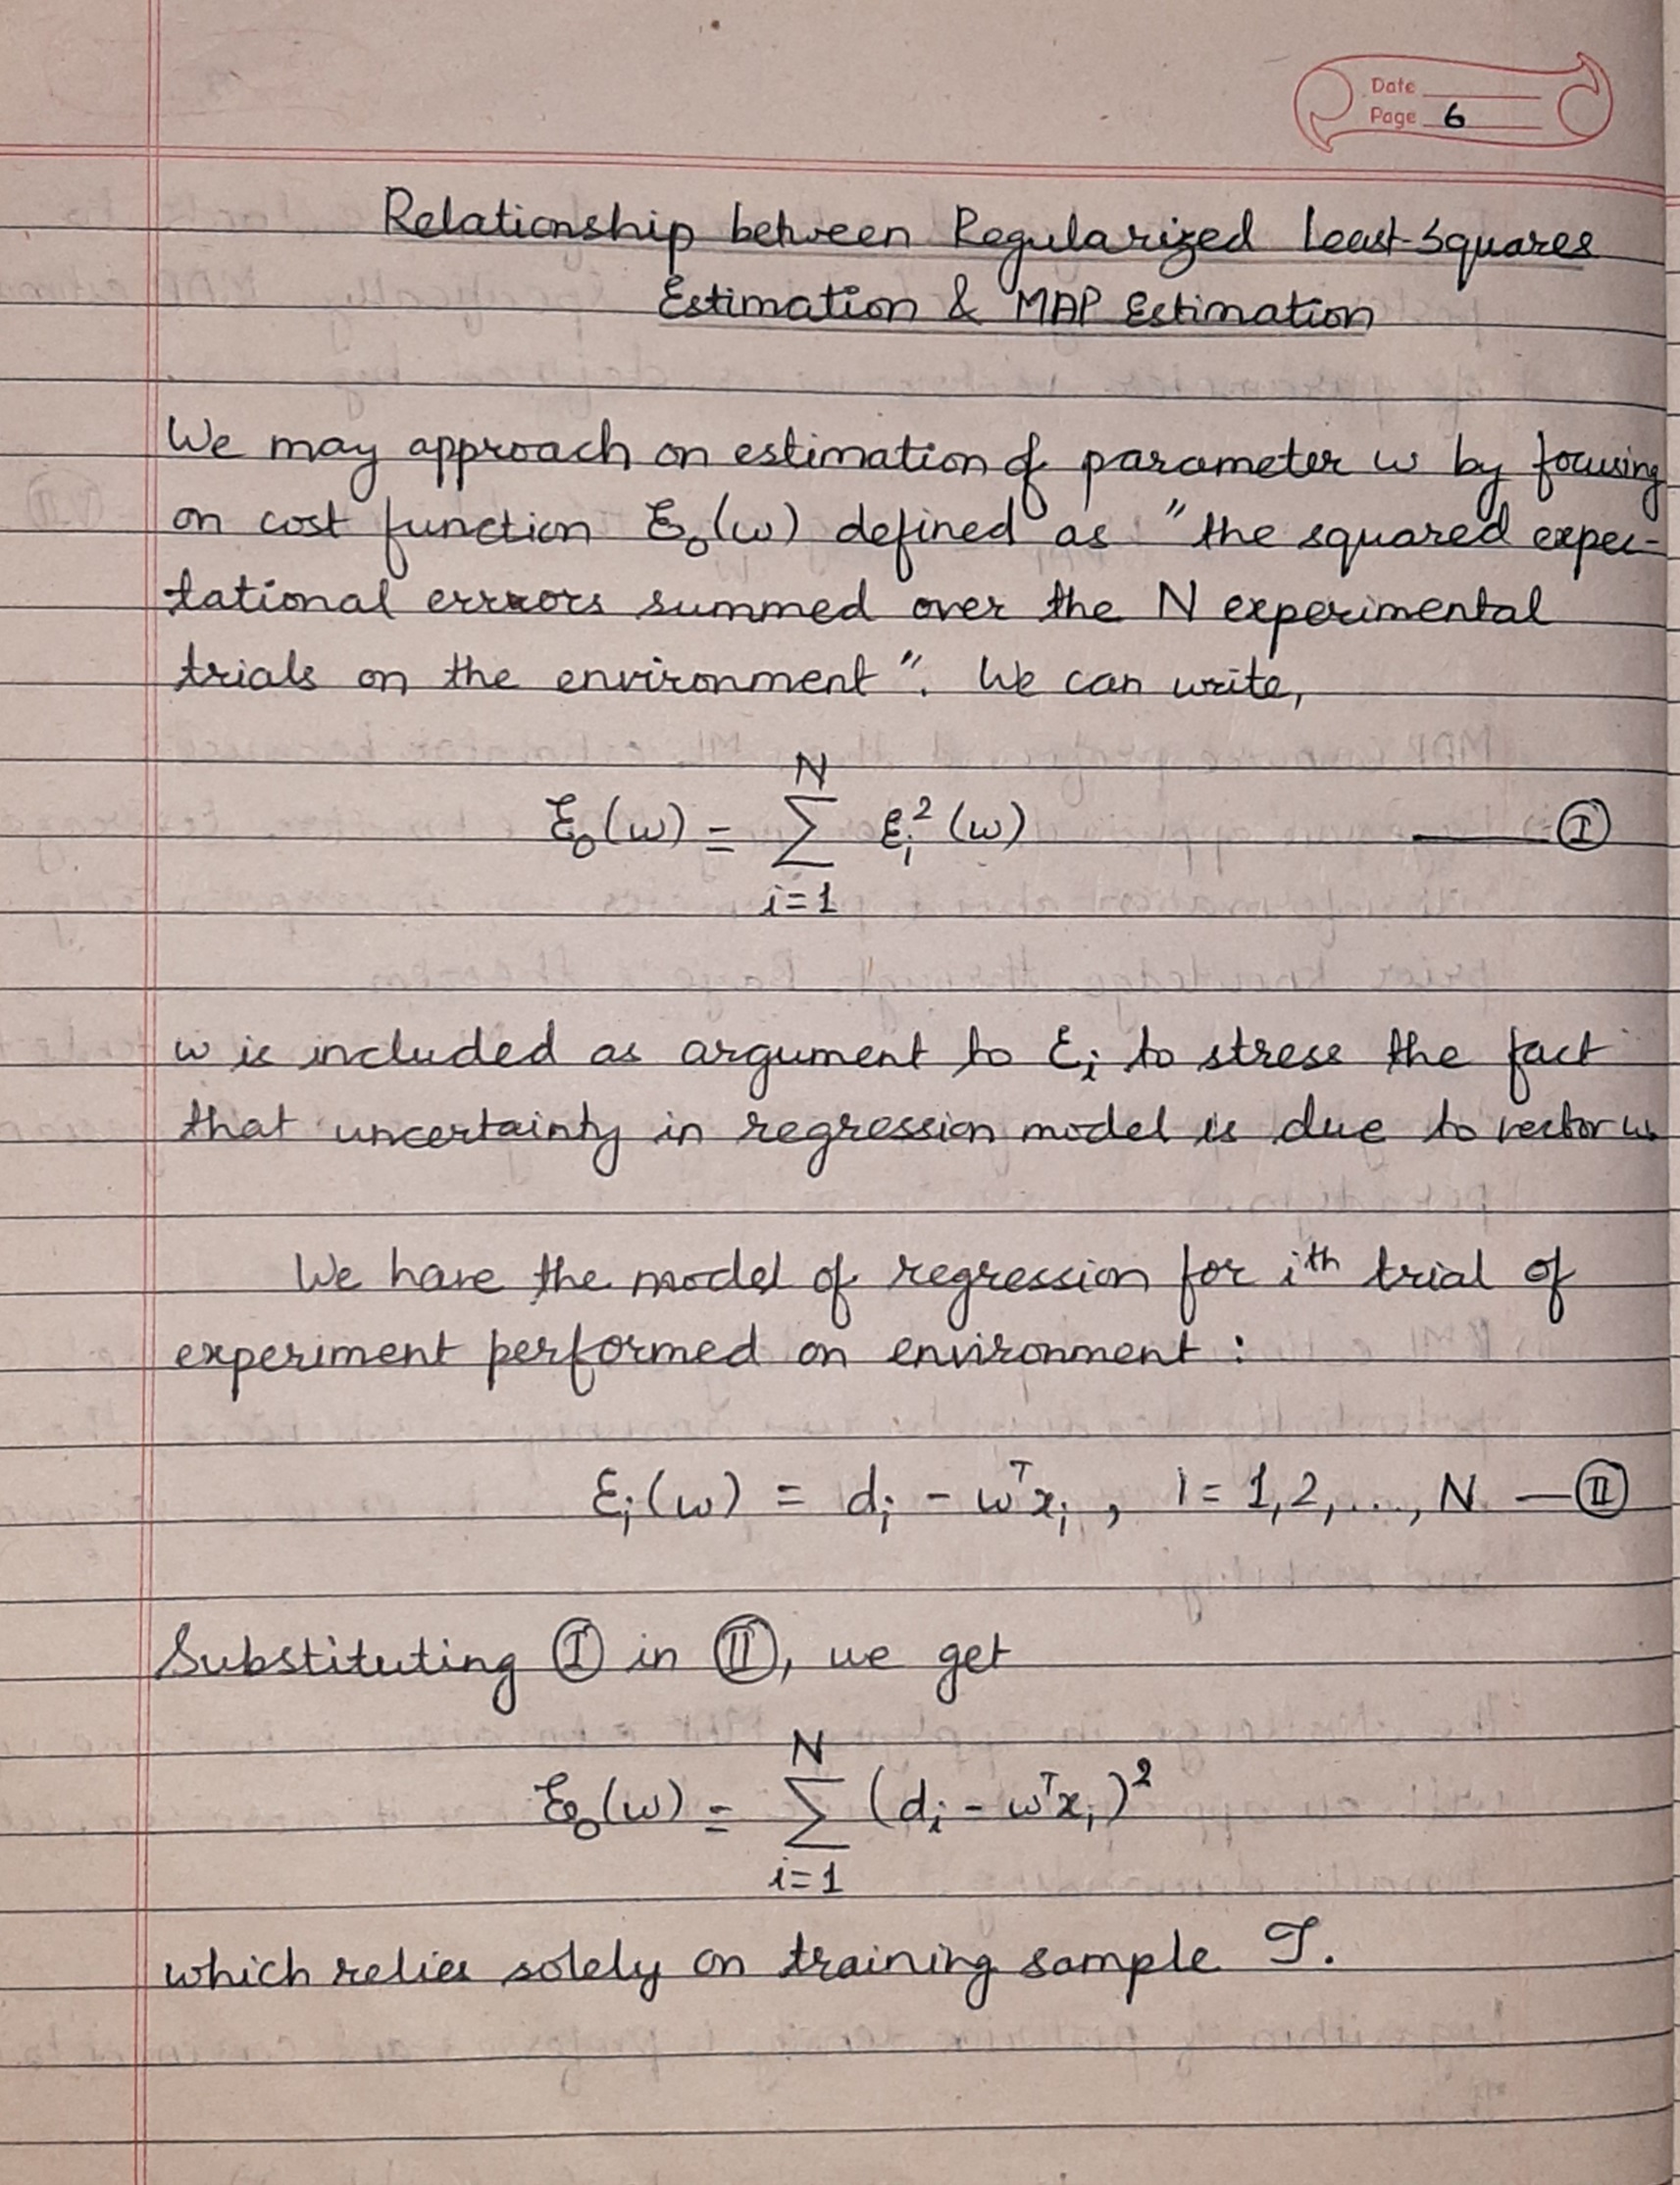 Date
Page 6
Relationship between Regularized Least-Squares
Estimation & MAP Estimation
We may approach on estimation of parameter w by focusing
on cost function ℰ₀(w) defined as "the squared expec-
tational errors summed over the N experimental
trials on the environment". We can write,
N
ℰ₀(w) = ∑ εᵢ²(w) —— Ⓘ
i=1
w is included as argument to εᵢ to stress the fact
that uncertainty in regression model is due to vector w.
We have the model of regression for iᵗʰ trial of
experiment performed on environment :
εᵢ(w) = dᵢ - wᵀxᵢ , i = 1,2,...,N — Ⅱ
Substituting Ⓘ in Ⅱ, we get
N
ℰ₀(w) = ∑ (dᵢ - wᵀxᵢ)²
i=1
which relies solely on training sample 𝒯.